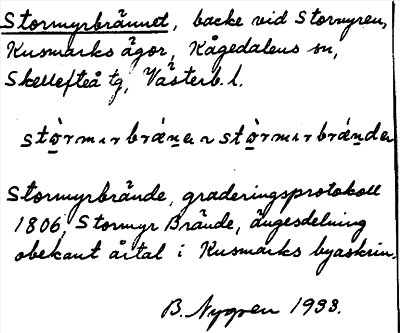 Stormyrbrännet, backe vid Stormyren,
Kusmarks ägor, Kågedalens sn,
Skellefteå tg, Västerb. l.
stòrmırbránẹ ~ stòrmırbrándẹ
Stormyrbrände, graderingsprotokoll
1806, Stormyr Brände, ängesdelning
obekant årtal i Kusmarks byaskrin.
B. Nygren 1933.